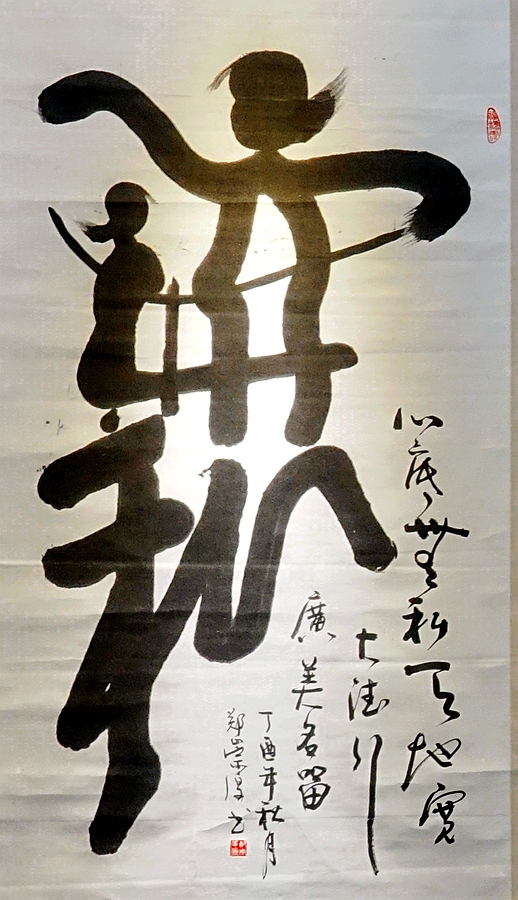 無私
心底無私天地寬
大德行
廣美名留
丁酉年秋月
鄭崇書